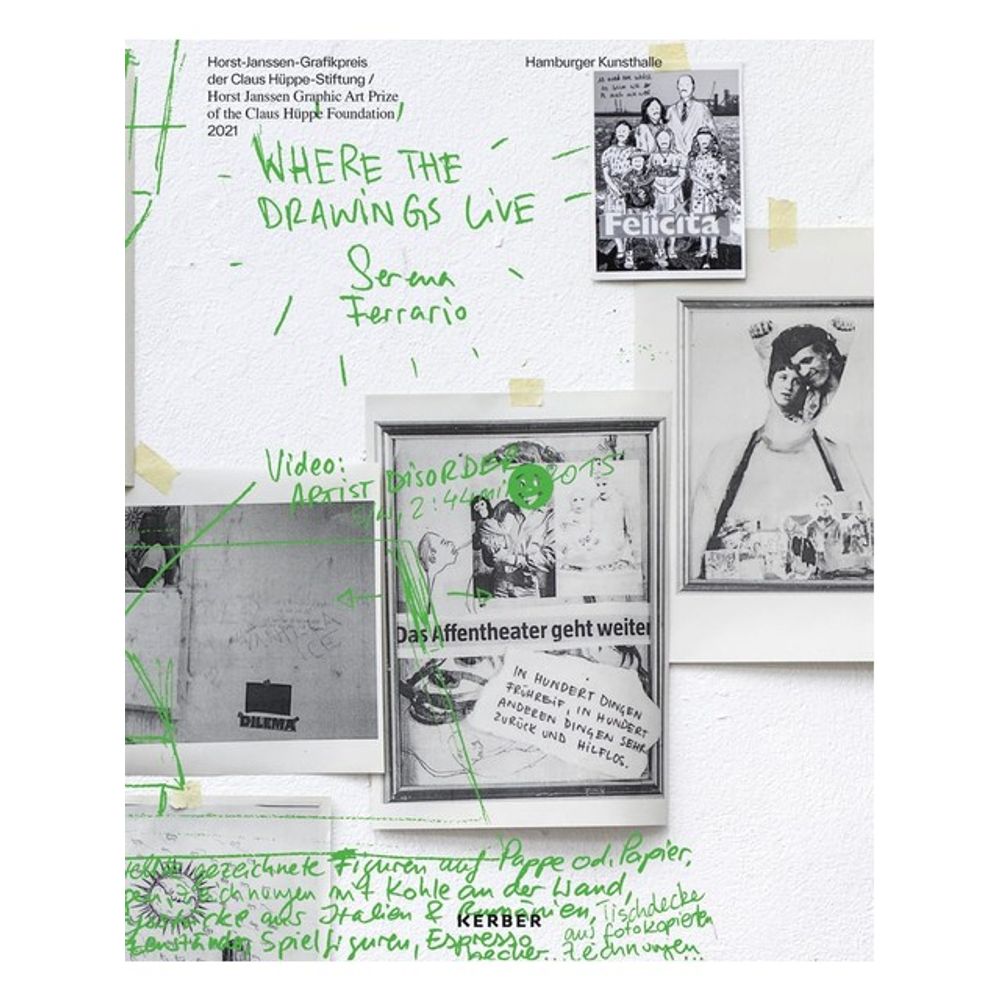 Horst-Janssen-Grafikpreis
der Claus Hüppe-Stiftung /
Horst Janssen Graphic Art Prize
of the Claus Hüppe Foundation
2021
Hamburger Kunsthalle
WHERE THE
DRAWINGS LIVE
Serena
Ferrario
Felicita
Video:
ARTIST DISORDER
2:44
Das Affentheater geht weiter
IN HUNDERT DINGEN
FRÜHREIF, IN HUNDERT
ANDEREN DINGEN SEHR
ZURÜCK UND HILFLOS.
DILEMA
gezeichnete Figuren auf Pappe od. Papier,
mit Kohle an der Wand,
aus Italien & Rumänien, Tischdecke
aus fotokopierten
Spielfiguren, Espresso
becher.. Zeichnungen
KERBER